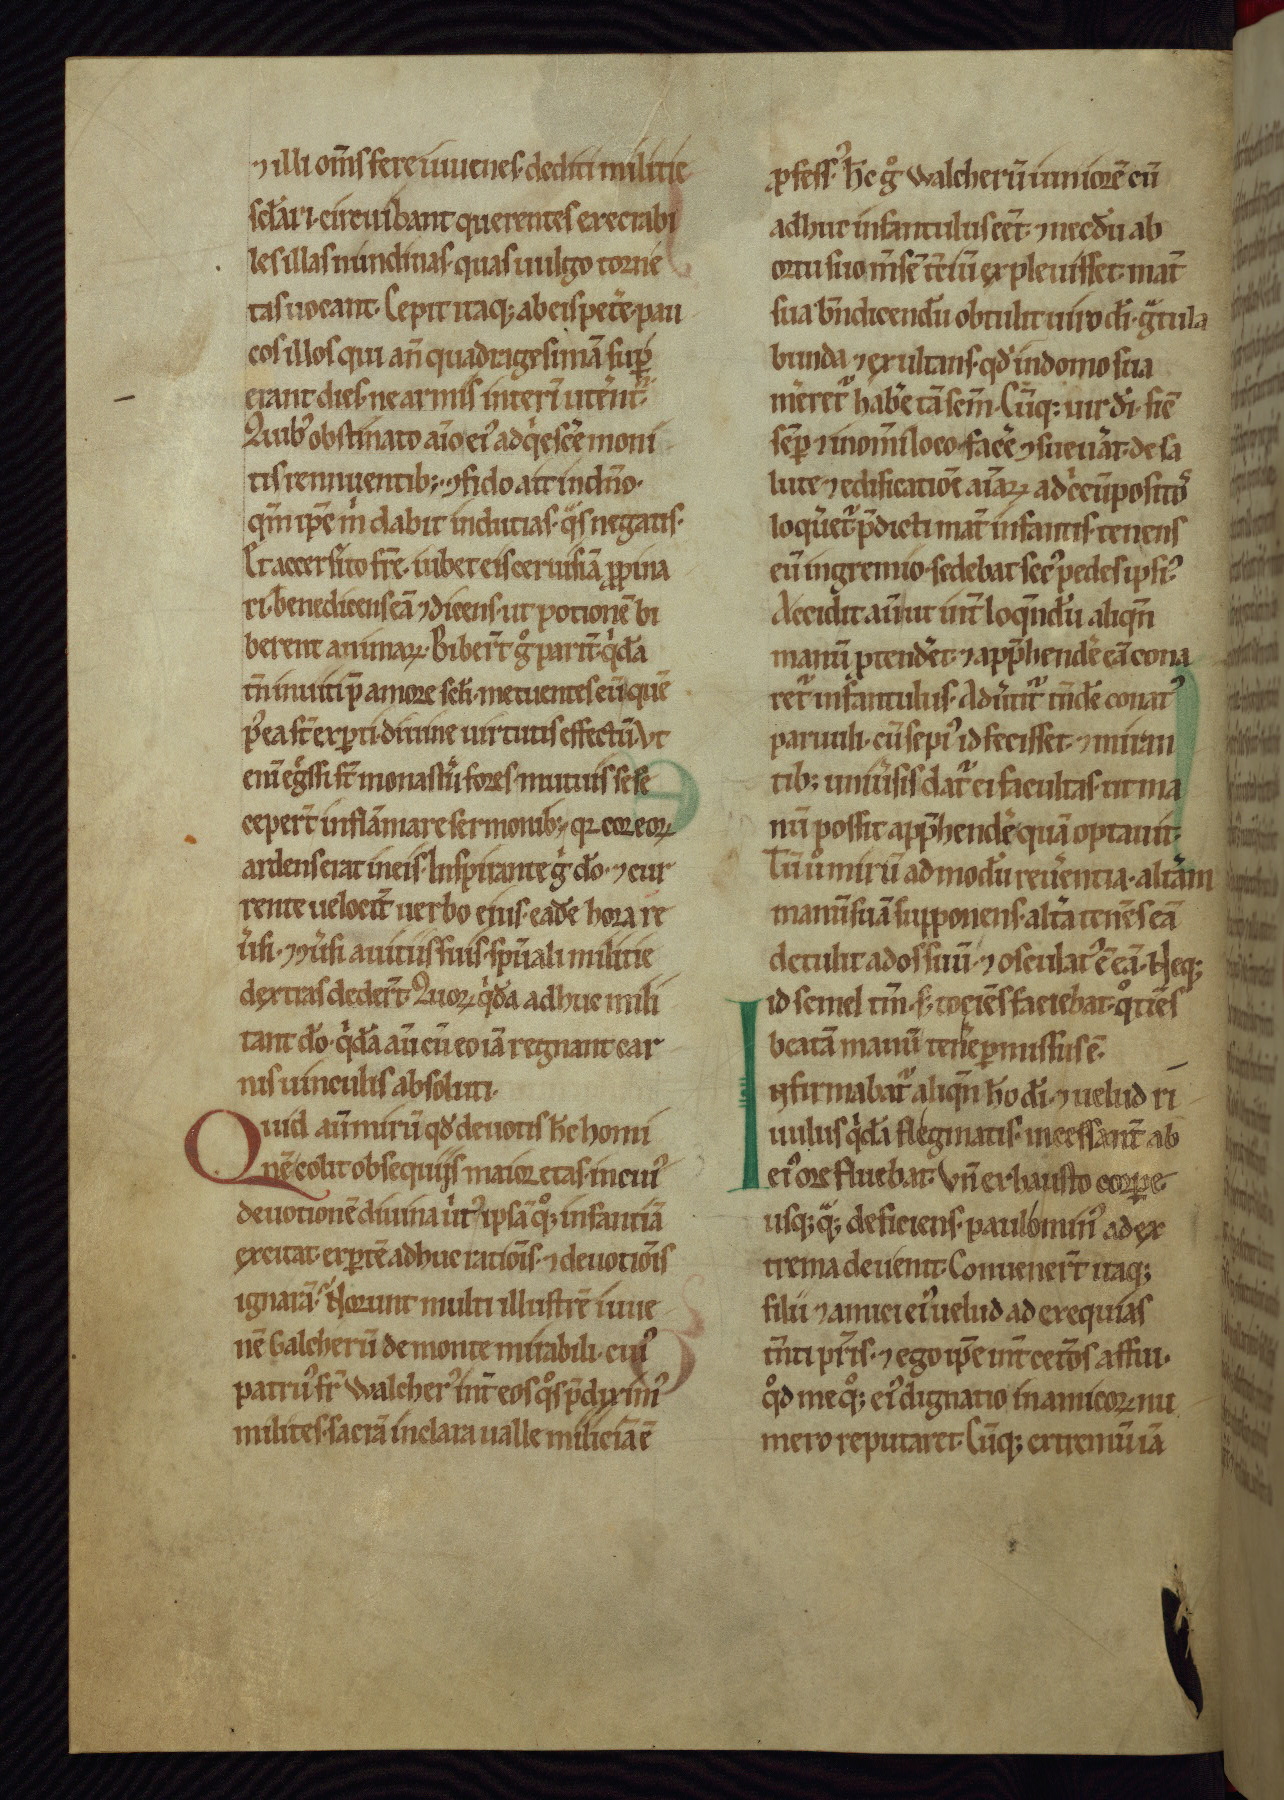 ⁊ illi om̅s fere iuuenes· dediti militie
sc̅lari· circuibant querentes execrabi
les illas nundinas· quas uulgo torne
tas uocant· Cepit itaq; ab eis pete̅· pau
cos illos qui an̅ quadragesima̅ sup̅
erant dies· ne armis interi̅ ute̅nt̅·
Quib᷒ obstinato ai̅o ei᷒ adq̍esce̅ moni
tis rennuentib;· ꝯfido ait in dn̅o·
qm̅ ip̅e m̍ dabit inducias· q̅s negatis·
Et accersito fr̅e· iubet eis ceruisia̅ ꝓpina
ri· benedicens ea̅ ⁊ dicens· ut potione̅ bi
berent animaꝝ· Biber̅t gͦ parit̅· q̍da̅
tn̅ inuiti p̅ amore sc̅li· metuentes eu̅ que̅
p᷒ea st̅ exꝑti· diuine uirtutis effectu̅· Vt
eni̅ eg̅ssi st̅ monast̅ii fores· mutuis sese
ceper̅t infla̅mare sermonib;· qꝛ cor eoꝝ
ardens erat in eis· Inspirante g̍ do̅· ⁊ cur
rente uelocit̅ uerbo eius· eade̅ hora re
u̅si· ⁊ ꝯu̅si a uiciis suis· spu̅ali militie
dextras deder̅t· Quoꝝ q̍da̅ adhuc mili
tant do̅· q̍da̅ au̅ cu̅ eo ia̅ regnant car
nis uinculis absoluti·
Quid au̅ miru̅ qd̅ deuotis h̅c homi
ne̅ colit obsequiis maior etas· in cui᷒
deuotione̅ diuina u̍t᷒ ipsa̅ qͦ; infantia̅
excitat· exꝑte̅ adhuc ratio̅is· ⁊ deuotio̅is
ignara̅· Norunt multi illustre̅ iuue
ne̅ Galcheru̅ de monte mirabili· cui᷒
patru᷒ fr̅ Walcher᷒ int̅ eos qͦs p̅dixim᷒
milites· sacra̅ in clara ualle milicia̅ e̅
ꝓfess᷒· h̅c gͦ Walcheru̅ iuniore̅ cu̅
adhuc infantulus e̅et̅· ⁊ necdu̅ ab
ortu suo m̅se̅ t̅ciu̅ expleuisset· mat̅
sua bn̅dicendu̅ obtulit uiro di̅· g̅tula
bunda ⁊ exultans· qd̅ in domo sua
meret᷑ habe̅ ta̅ sc̅m· Cu̅q; uir di̅· sic̅
se̅ꝑ ⁊ in om̅i loco face̅ ꝯsueu̅at· de sa
lute ⁊ edificatio̅e ai̅aꝝ ad ccu̅positoꝝ
loquet᷑· p̅dicti mat̅ infantis· tenens
eu̅ in gremio· sedebat sec᷒ pedes ipsi᷒
Accidit au̅ ut int̅ loqn̅du̅ aliqn̅
manu̅ p̅tende̅t· ⁊ app̅hende̅ ea̅ cona
ret᷑ infantulus· Adu̅tit᷑ tn̅de̅ conat᷒
paruuli· cu̅ sepi᷒ id fecisset· ⁊ miran
tib; uniu̅sis dat᷑ ei facultas· ut ma
nu̅ possit app̅hende̅ qua̅ optauit·
Tu̅ uͦ miru̅ ad modu̅ reu̅entia· alt̅am
manu̅ sua̅ supponens· alt̅a tene̅s ea̅
detulit ad os suu̅· ⁊ osculat᷒ e̅ ea̅· Neq;
id semel tm̅· s; tocie̅s faciebat· qͦtie̅s
beata̅ manu̅ tene̅ ꝑmissus e̅·
Infirmabat᷑ aliqn̅ ho̅ di̅· ⁊ uelud ri
uulus q̍da̅ flegmatis· incessant̅ ab
ei᷒ ore fluebat· Vn̅ exhausto corꝑe·
usq; q̅; deficiens· paulomin᷒ ad ex
trema deuenit· Conuener̅t itaq;
filii ⁊ amici ei᷒ uelud ad exequias
tn̅ti pr̅is· ⁊ ego ip̅e int̅ cet̅os affui·
qͦd me qͦ; ei᷒ dignatio in amicoꝝ nu
mero reputaret· Cu̅q; extremu̅ ia̅